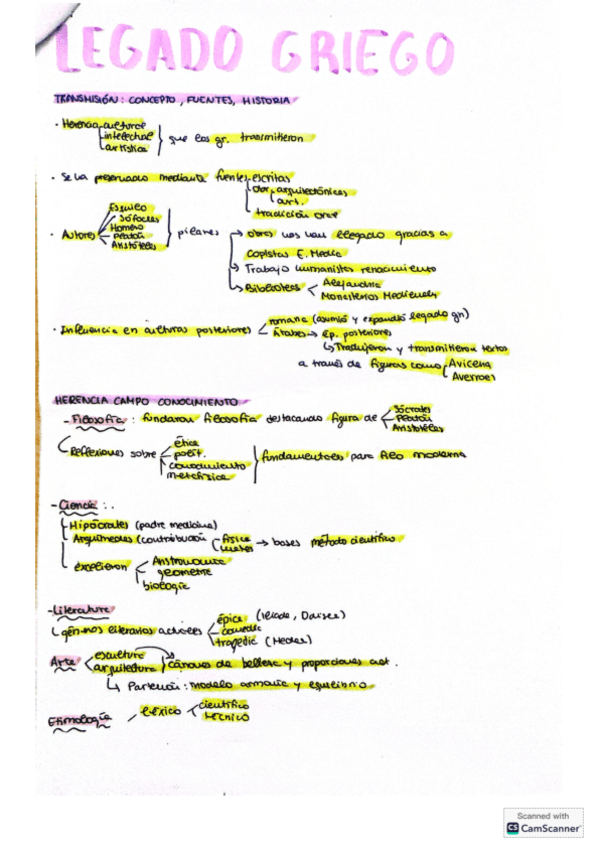 LEGADO GRIEGO
TRANSMISIÓN: CONCEPTO, FUENTES, HISTORIA
· Herencia cultural
intelectual
artística
que los gr. transmitieron
· Se ha preservado mediante fuentes escritas
arquitectónicas
art.
tradición oral
· Autores
Esquilo
Sófocles
Homero
Platón
Aristóteles
pilares
obras nos han llegado gracias a
copistas E. Media
Trabajo humanistas renacimiento
Bibliotecas
Alejandría
Monasterios Medievales
· Influencia en culturas posteriores
romana (asumió y expandió legado gr)
Árabes → ep. posteriores
↳ Tradujeron y transmitieron textos
a través de figuras como
Avicena
Averroes
HERENCIA CAMPO CONOCIMIENTO
- Filosofía: fundaron filosofía destacando figura de
Sócrates
Platón
Aristóteles
Reflexiones sobre
ética
polít.
conocimiento
metafísica
fundamentales para filo moderna
- Ciencia:.
Hipócrates (padre medicina)
Arquímedes (contribución
física
mates
→ bases método científico
excelieron
Anstronomía
geometría
biología
- Literatura
géneros literarios actuales
épica (Iliada,
comedia
tragedia (Medea)
Arte
escultura
arquitectura
cánones de belleza y proporciones
↳ Partenón: modelo armonía y equilibrio
Etimología
léxico
científico
técnico
Scanned with
CS CamScanner